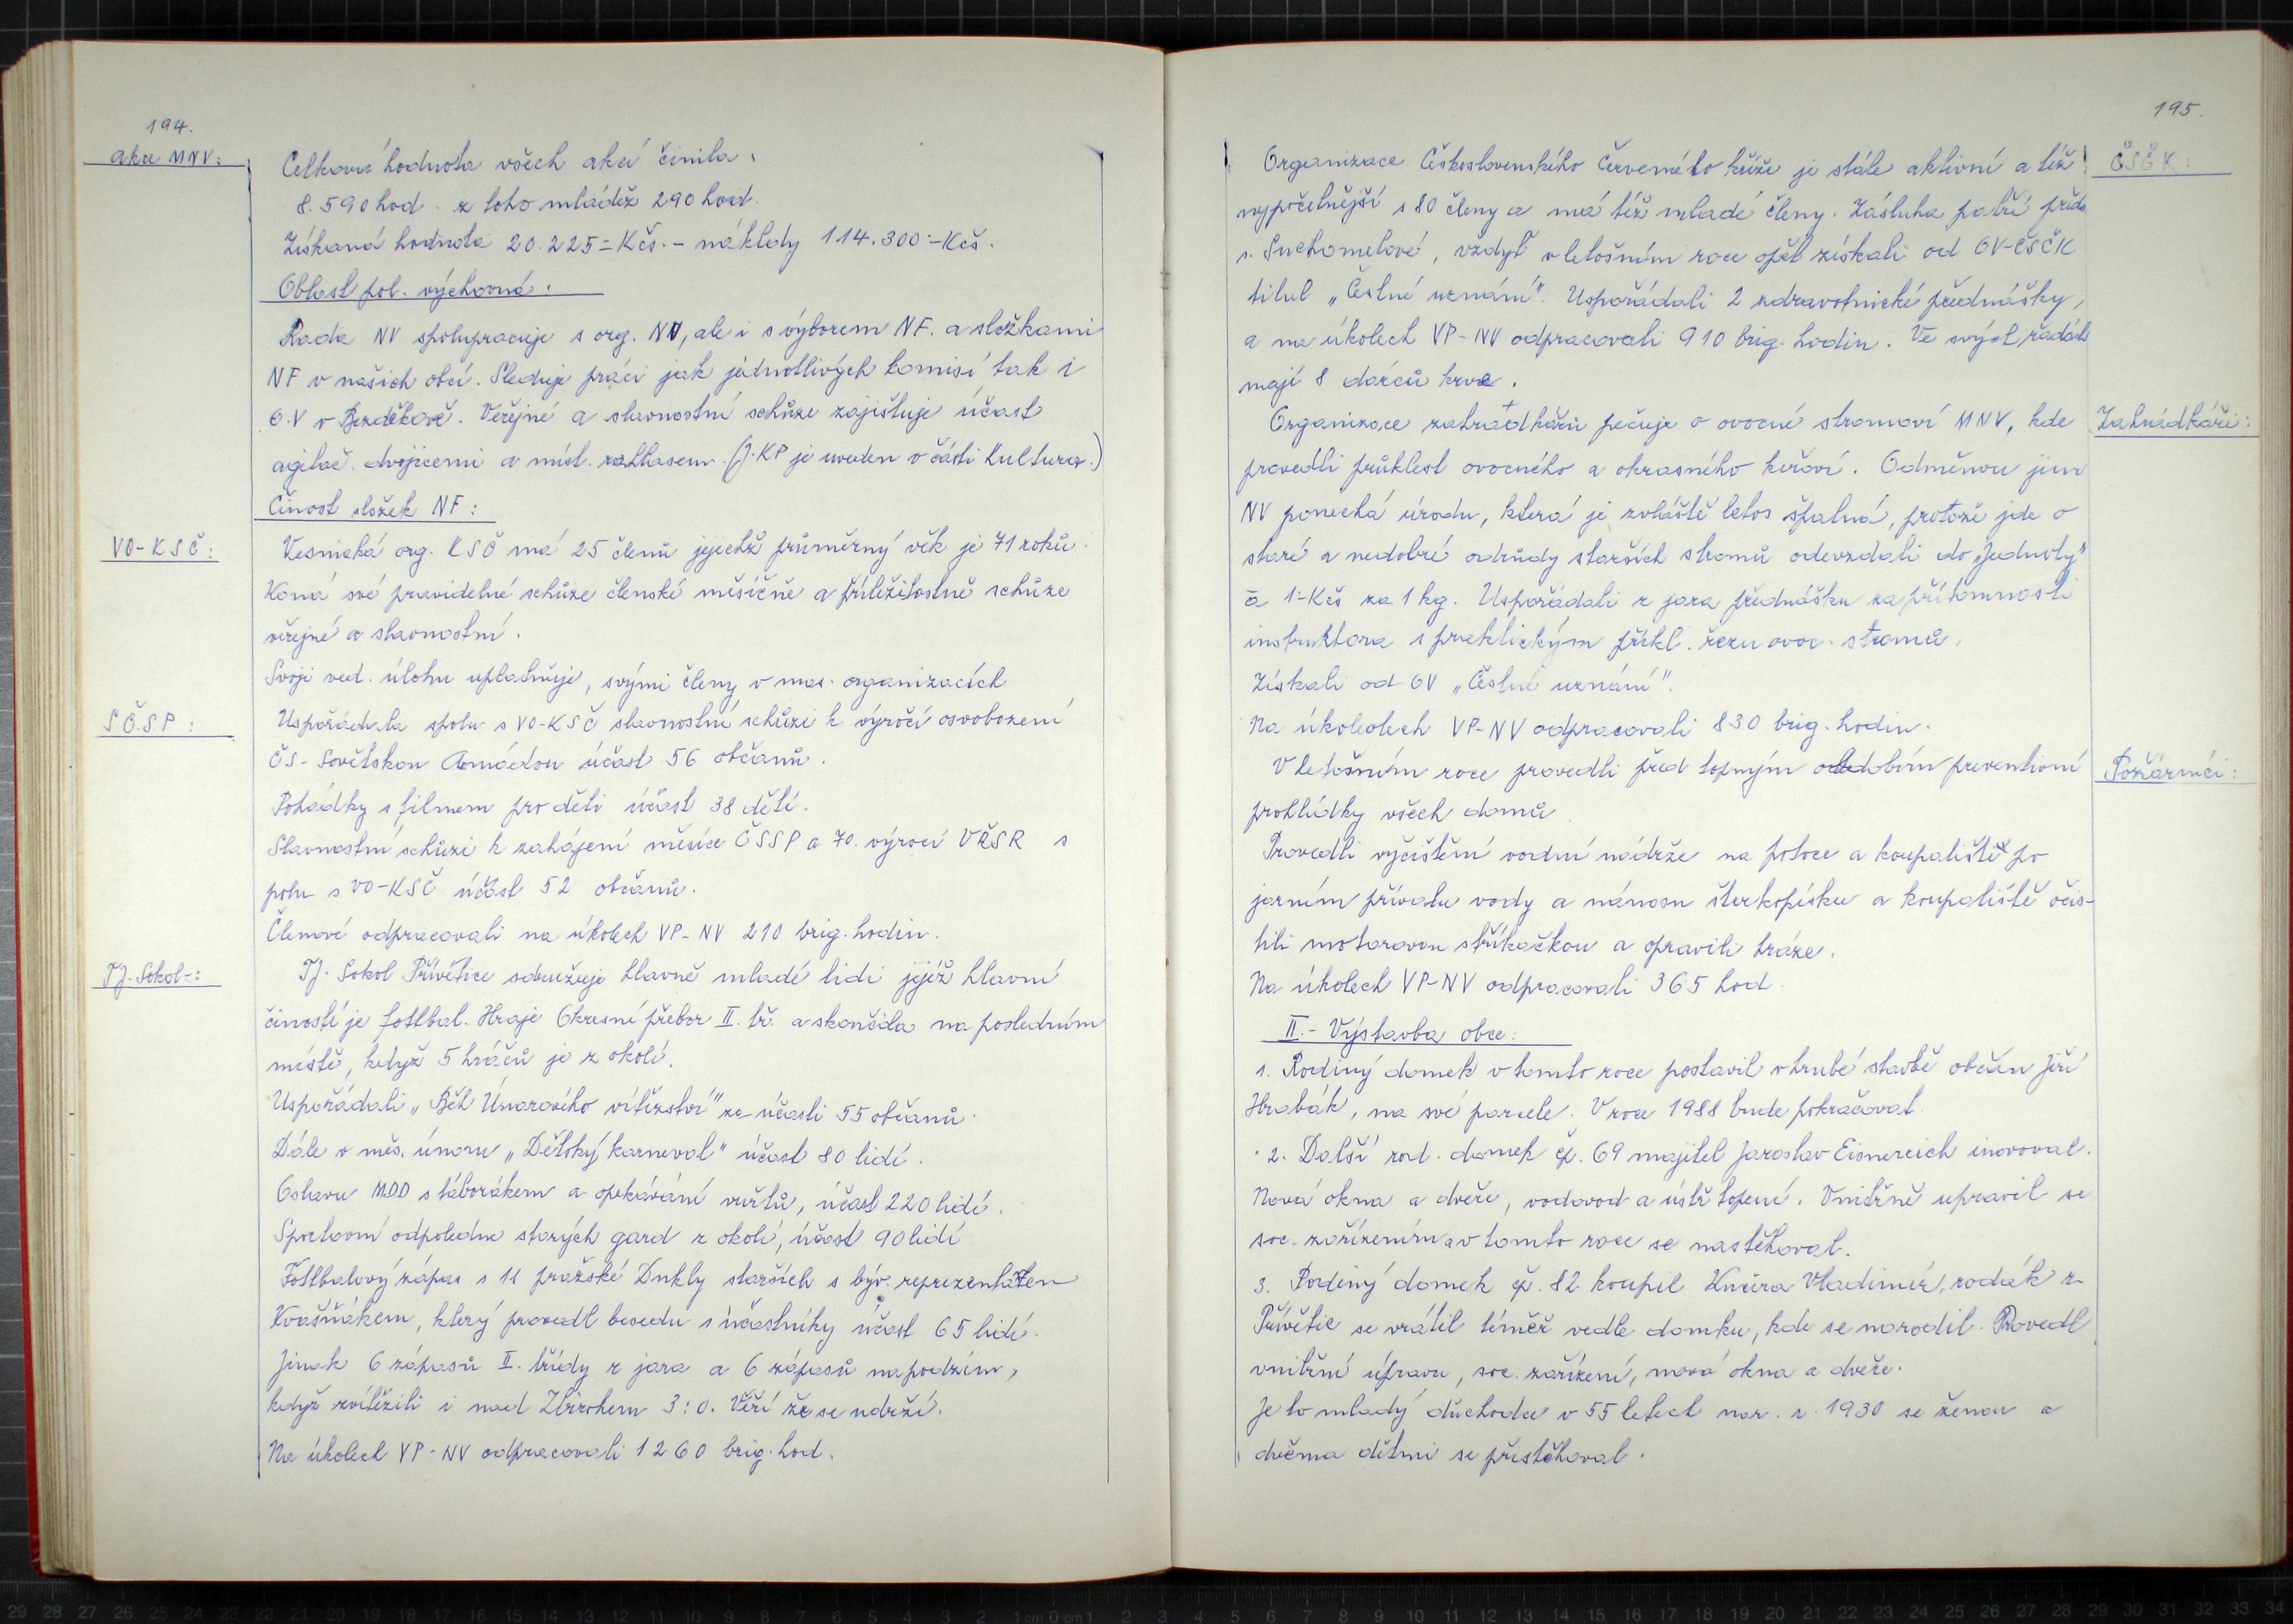 194.
akce MNV:
Celková hodnota všech akcí činila:
8.590 hod. z toho mládež 290 hod.
Získaná hodnota 20.225= Kčs. - náklady 114.300:- Kčs.
Oblast pol. výchovná:
Rada NV spolupracuje s org. NV, ale i s výborem NF. a složkami
NF v našich obcí. Sleduje práci jak jednotlivých komisí tak i
O.V v Bezděkově. Veřejné a slavnostní schůze zajištuje účast
agitač. dvojicemi a míst. rozhlasem. (J. KP je uveden v části Kultura.)
Činost složek NF:
VO-KSČ:
Vesnická org. KSČ má 25 členů jejichž průměrný věk je 71 roků.
Koná své pravidelné schůze členské měsíčně a příležitostně schůze
veřejné a slavnostní.
Svoji ved. úlohu uplatnuje, svými členy v mas. organizacích
S.Č.S.P:
Uspořádala spolu s VO-KSČ slavnostní schůzi k výročí osvobození
ČS- Sovětskou Armádou účast 56 občanů.
Pohádky s filmem pro děti účast 38 dětí.
Slavnostní schůzi k zahájení měsíce ČSSP a 70. výrocí VŘSR s
polu s VO-KSČ účast 52 občanů.
Členové odpracovali na úkolech VP-NV 210 brig. hodin.
TJ. Sokol-:
TJ. Sokol Přívětice sdružuje hlavně mladé lidi jejíž hlavní
čiností je fotbal. Hraje Okresní přebor II. tř. a skončila na posledním
místě, když 5 hráčů je z okolí.
Uspořádali „Běh Únorového vítězství" za účasti 55 občanů.
Dále v měs. únoru „Dětský karneval" účast 80 lidí.
Oslavu MDD s táborákem a opékávání vuřtů, účast 220 lidí.
Sportovní odpoledne starých gard z okolí, účast 90 lidí
Fotbalový zápas s 11 pražské Dukly starších s býv. reprezentatem
Kvašňákem, který provedl besedu s účastníky účast 65 lidí.
Jinak 6 zápasů II. třídy z jara a 6 zápasů na podzim,
když zvítězili i nad Zbirohem 3:0. Věří že se udrží.
Na úkolech VP-NV odpracovali 1260 brig. hod.
195.
ČSČK:
Organizace Československého Červeného kříže je stále aktivní a též
nejpočetnější s 80 členy a má též mladé členy. Zásluha patří před.
s. Suchomelové, vždyť v letošním roce opět získali od OV-ČSČK
titul „Čestné uznání". Uspořádali 2 zdravotnické přednášky,
a na úkolech VP-NV odpracovali 910 brig. hodin. Ve svých řadách
mají 8 dárců krve.
Zahrádkáři:
Organizace zahrádkářů pečuje o ovocné stromoví MNV, kde
provedli průklest ovocného a okrasného keřoví. Odměnou jim
NV ponechá úrodu, která je zvláště letos špatná, protože jde o
staré a nedobré odrůdy starších stromů odevzdali do „Jednoty"
à 1:- Kčs za 1 kg. Uspořádali z jara přednášku za přítomnosti
instruktora s praktickým příkl. řezu ovoc. stromů.
Získali od OV „Čestné uznání".
Na úkolech VP-NV odpracovali 830 brig. hodin.
Požárníci:
V letošním roce provedli před topným obdobím preventivní
prohlídky všech domů.
Provedli vyčištění vodní nádrže na potoce a koupaliště po
jarním přívalu vody a nánosu šterkopísku a koupaliště očis-
tili motorovou stříkačkou a opravili hráze.
Na úkolech VP-NV odpracovali 365 hod.
II.- Výstavba obce:
1. Rodiný domek v tomto roce postavil v hrubé stavbě občan Jiří
Hrabák, na své parcele. V roce 1988 bude pokračovat.
2. Další rod. domek čp. 69 majitel Jaroslav Eisnereich inovoval.
Nová okna a dveře, vodovod a ústř topení. Vnitřně upravil se
soc. zařízením a v tomto roce se nastěhoval.
3. Rodiný domek čp. 82 koupil Vladimír, rodák z
Přívětic se vrátil téměř vedle domku, kde se narodil. Provedl
vnitřní úpravu, soc. zařízení, nová okna a dveře.
Je to mladý důchodce v 55 letech nar. r. 1930 se ženou a
dvěma dětmi se přistěhoval.